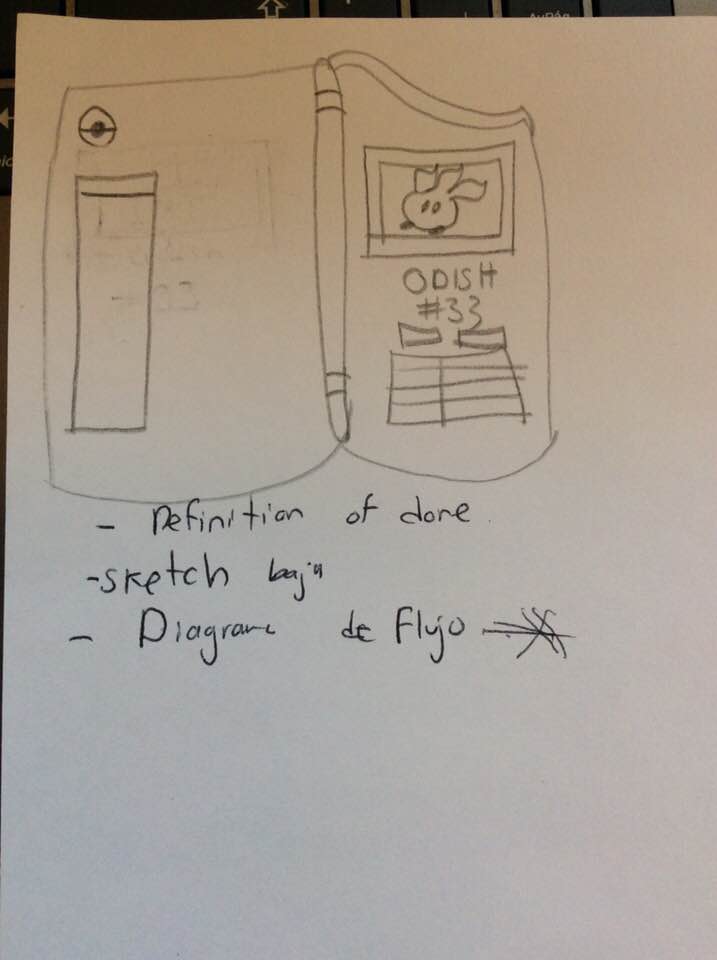 ODISH
#33
- Definition of done
- sketch baja
- Diagrama de Flujo